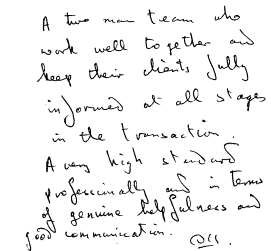 A two man team who
work well together and
keep their clients fully
informed at all stages
in the transaction.
A very high standard
professionally and in terms
of genuine helpfulness and
good communication.